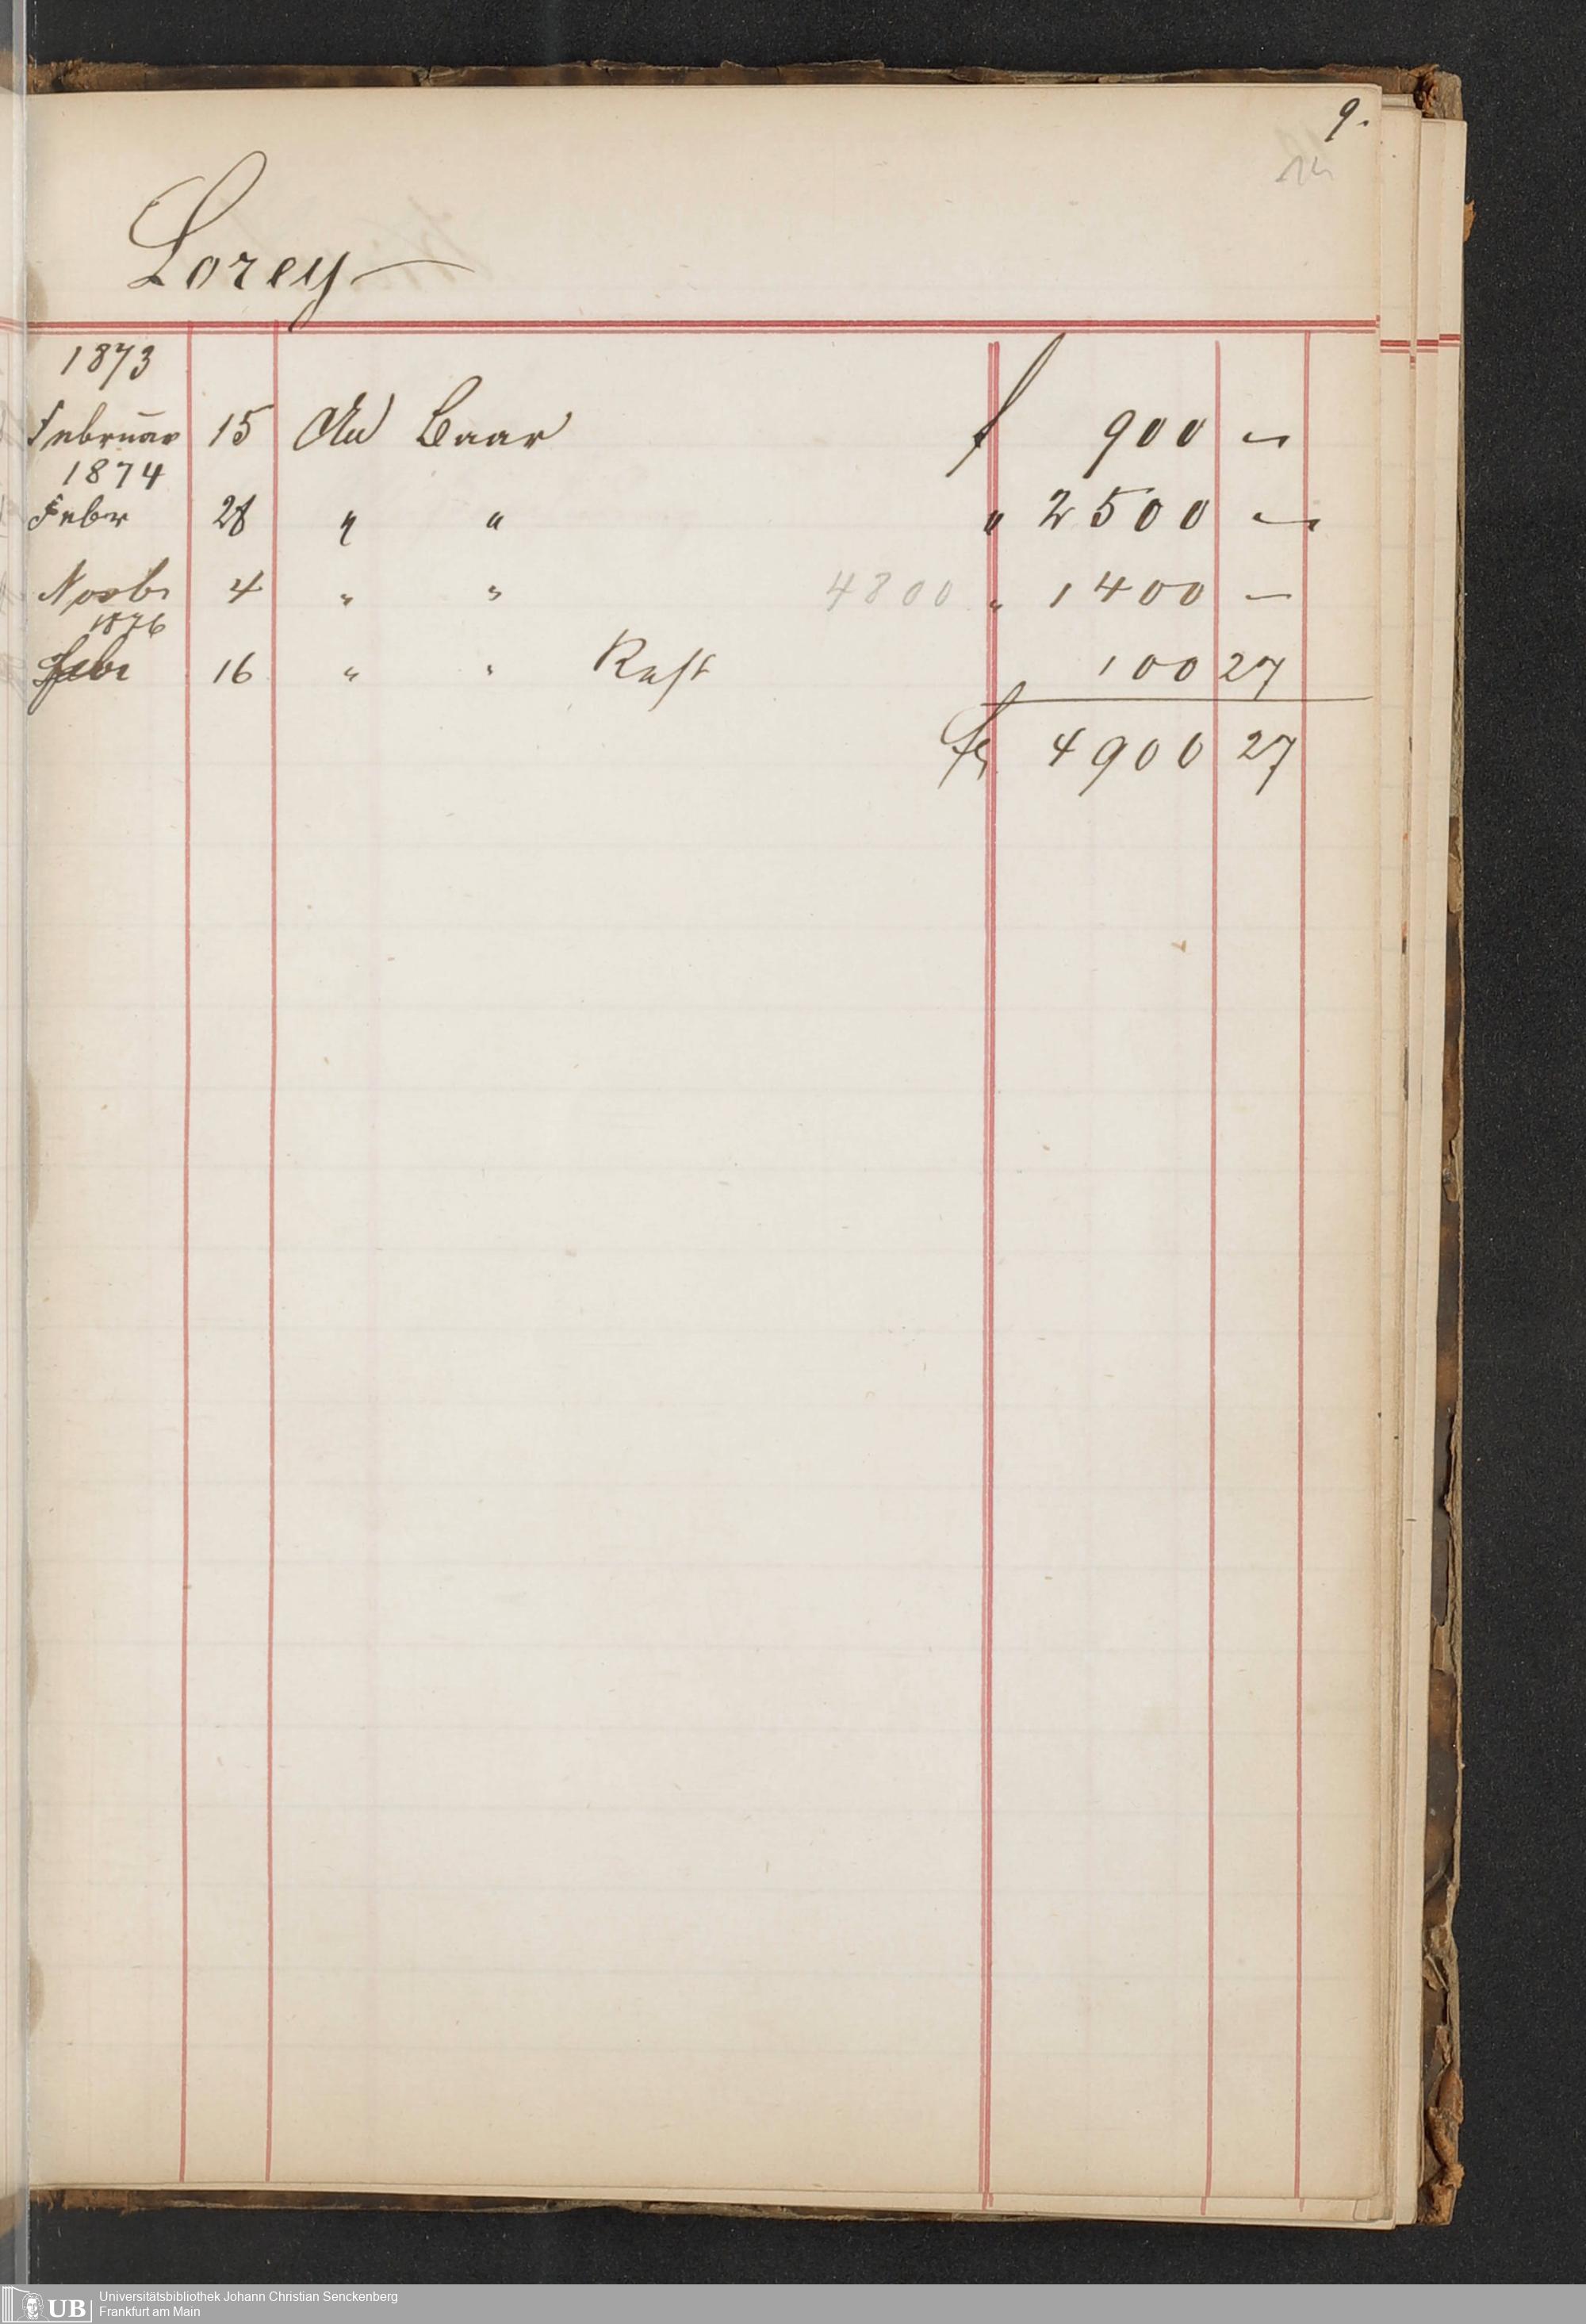 9.
14
Lorey
1873
Februar 15 An Baar f 900 —
1874
Febr 28 " " " 2500 —
Novbr 4 " " 4800 " 1400 —
1876
Febr 16 " " Rest 100 27
fl 4900 27
UB Universitätsbibliothek Johann Christian Senckenberg
Frankfurt am Main